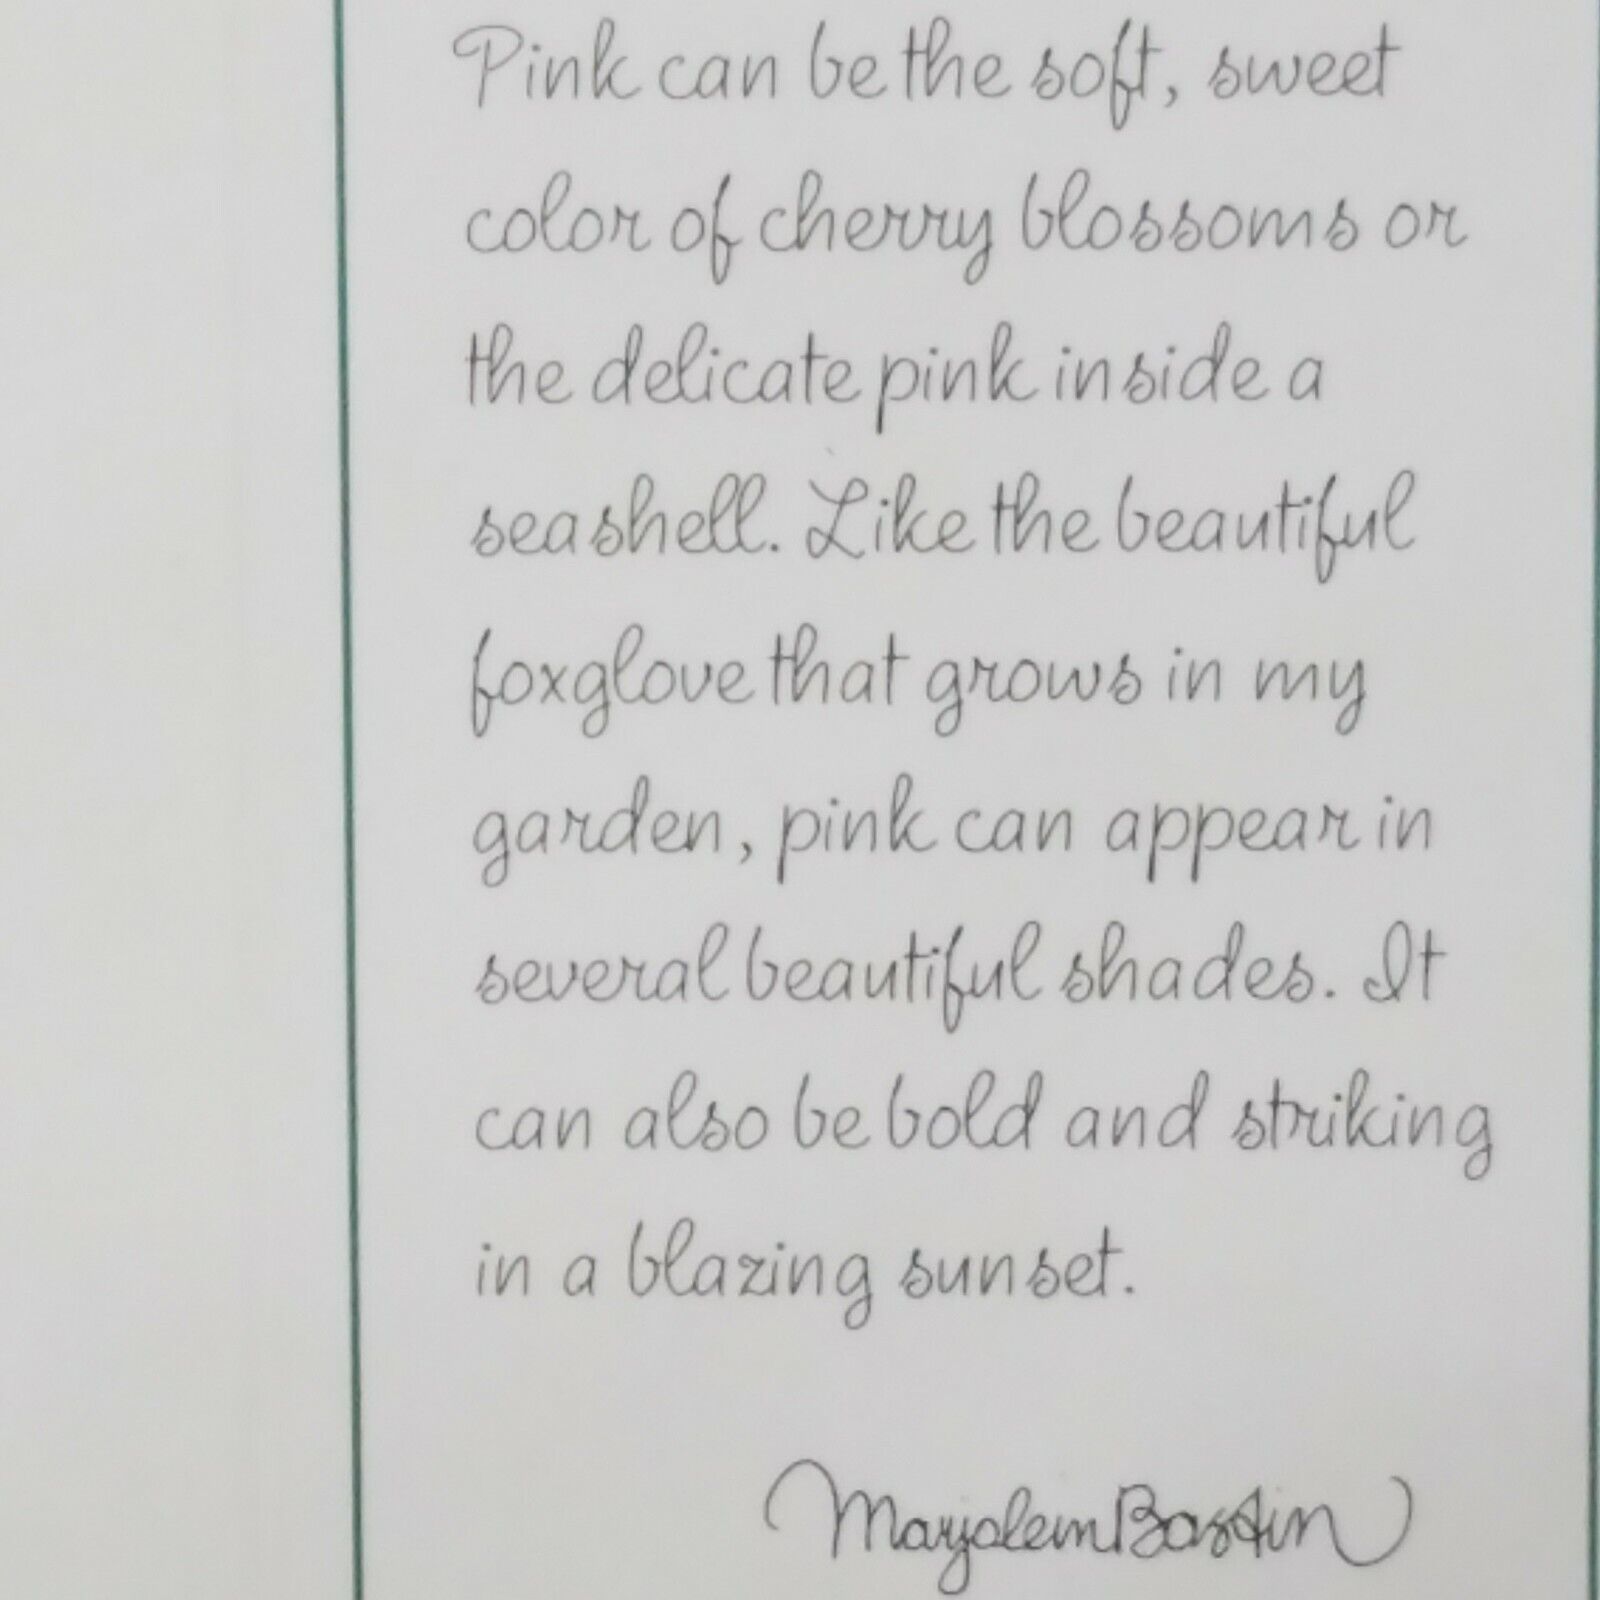 Pink can be the soft, sweet
color of cherry blossoms or
the delicate pink inside a
seashell. Like the beautiful
foxglove that grows in my
garden, pink can appear in
several beautiful shades. It
can also be bold and striking
in a blazing sunset.
Marjolein Bastin